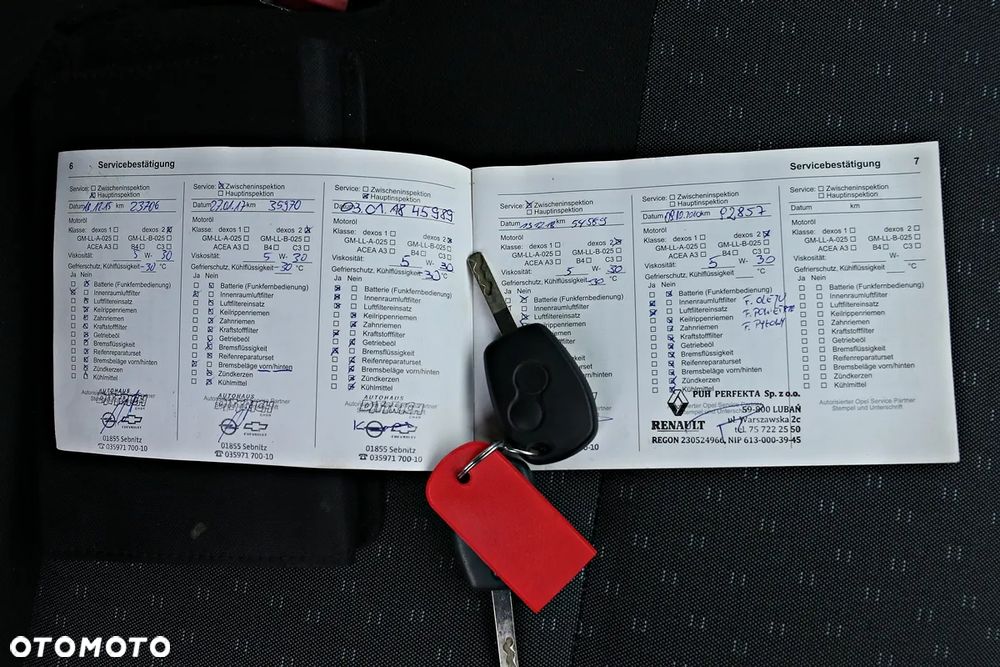 6 Servicebestätigung
Service: Zwischeninspektion
Hauptinspektion
Datum km 23706
Motoröl
Klasse: dexos 1 dexos 2
GM-LL-A-025 GM-LL-B-025
ACEA A3 B4 C3
Viskosität: 5 W- 30
Gefrierschutz, Kühlflüssigkeit -30 °C
Ja Nein
Batterie (Funkfernbedienung)
Innenraumluftfilter
Luftfiltereinsatz
Keilrippenriemen
Zahnriemen
Kraftstofffilter
Getriebeöl
Bremsflüssigkeit
Reifenreparaturset
Bremsbeläge vorn/hinten
Zündkerzen
Kühlmittel
01855 Sebnitz
☎ 035971 700-10
Service: Zwischeninspektion
Hauptinspektion
Datum 27.01.17 km 35370
Motoröl
Klasse: dexos 1 dexos 2
GM-LL-A-025 GM-LL-B-025
ACEA A3 B4 C3
Viskosität: 5 W- 30
Gefrierschutz, Kühlflüssigkeit -30 °C
Ja Nein
Batterie (Funkfernbedienung)
Innenraumluftfilter
Luftfiltereinsatz
Keilrippenriemen
Zahnriemen
Kraftstofffilter
Getriebeöl
Bremsflüssigkeit
Reifenreparaturset
Bremsbeläge vorn/hinten
Zündkerzen
Kühlmittel
AUTOHAUS
CHEVROLET
01855 Sebnitz
☎ 035971 700-10
Service: Zwischeninspektion
Hauptinspektion
03.01.18 45989
Motoröl
Klasse: dexos 1 dexos 2
GM-LL-A-025 GM-LL-B-025
ACEA A3 B4 C3
Viskosität: 5 W- 30
Gefrierschutz, Kühlflüssigkeit -30 °C
Ja Nein
Batterie (Funkfernbedienung)
Innenraumluftfilter
Luftfiltereinsatz
Keilrippenriemen
Zahnriemen
Kraftstofffilter
Getriebeöl
Bremsflüssigkeit
Reifenreparaturset
Bremsbeläge vorn/hinten
Zündkerzen
Kühlmittel
AUTOHAUS
CHEVROLET
01855 Sebnitz
☎ 035971 700-10
Servicebestätigung 7
Service: Zwischeninspektion
Hauptinspektion
Datum km
Motoröl
Klasse: dexos 1 dexos 2
GM-LL-A-025 GM-LL-B-025
ACEA A3 B4 C3
Viskosität: 5 W- 30
Gefrierschutz, Kühlflüssigkeit °C
Ja Nein
Batterie (Funkfernbedienung)
Innenraumluftfilter
Luftfiltereinsatz
Keilrippenriemen
Zahnriemen
Service: Zwischeninspektion
Hauptinspektion
Datum km 92857
Motoröl
Klasse: dexos 1 dexos 2
GM-LL-A-025 GM-LL-B-025
ACEA A3 B4 C3
Viskosität: 5 W- 30
Gefrierschutz, Kühlflüssigkeit °C
Ja Nein
Batterie (Funkfernbedienung)
Innenraumluftfilter F. OLEJU
Luftfiltereinsatz
Keilrippenriemen
Zahnriemen
Kraftstofffilter
Getriebeöl
Bremsflüssigkeit
Reifenreparaturset
Bremsbeläge vorn/hinten
Zündkerzen
Kühlmittel
PUH PERFEKTA Sp. z o.o.
59-800 LUBAŃ
RENAULT ul Warszawska 2c
tel 75 722 25 50
REGON 230524966, NIP 613-000-39-45
Service: Zwischeninspektion
Hauptinspektion
Datum km
Motoröl
Klasse: dexos 1 dexos 2
GM-LL-A-025 GM-LL-B-025
ACEA A3 B4 C3
Viskosität: W-
Gefrierschutz, Kühlflüssigkeit °C
Ja Nein
Batterie (Funkfernbedienung)
Innenraumluftfilter
Luftfiltereinsatz
Keilrippenriemen
Zahnriemen
Kraftstofffilter
Getriebeöl
Bremsflüssigkeit
Reifenreparaturset
Bremsbeläge vorn/hinten
Zündkerzen
Kühlmittel
Autorisierter Opel Service Partner
Stempel und Unterschrift
OTOMOTO